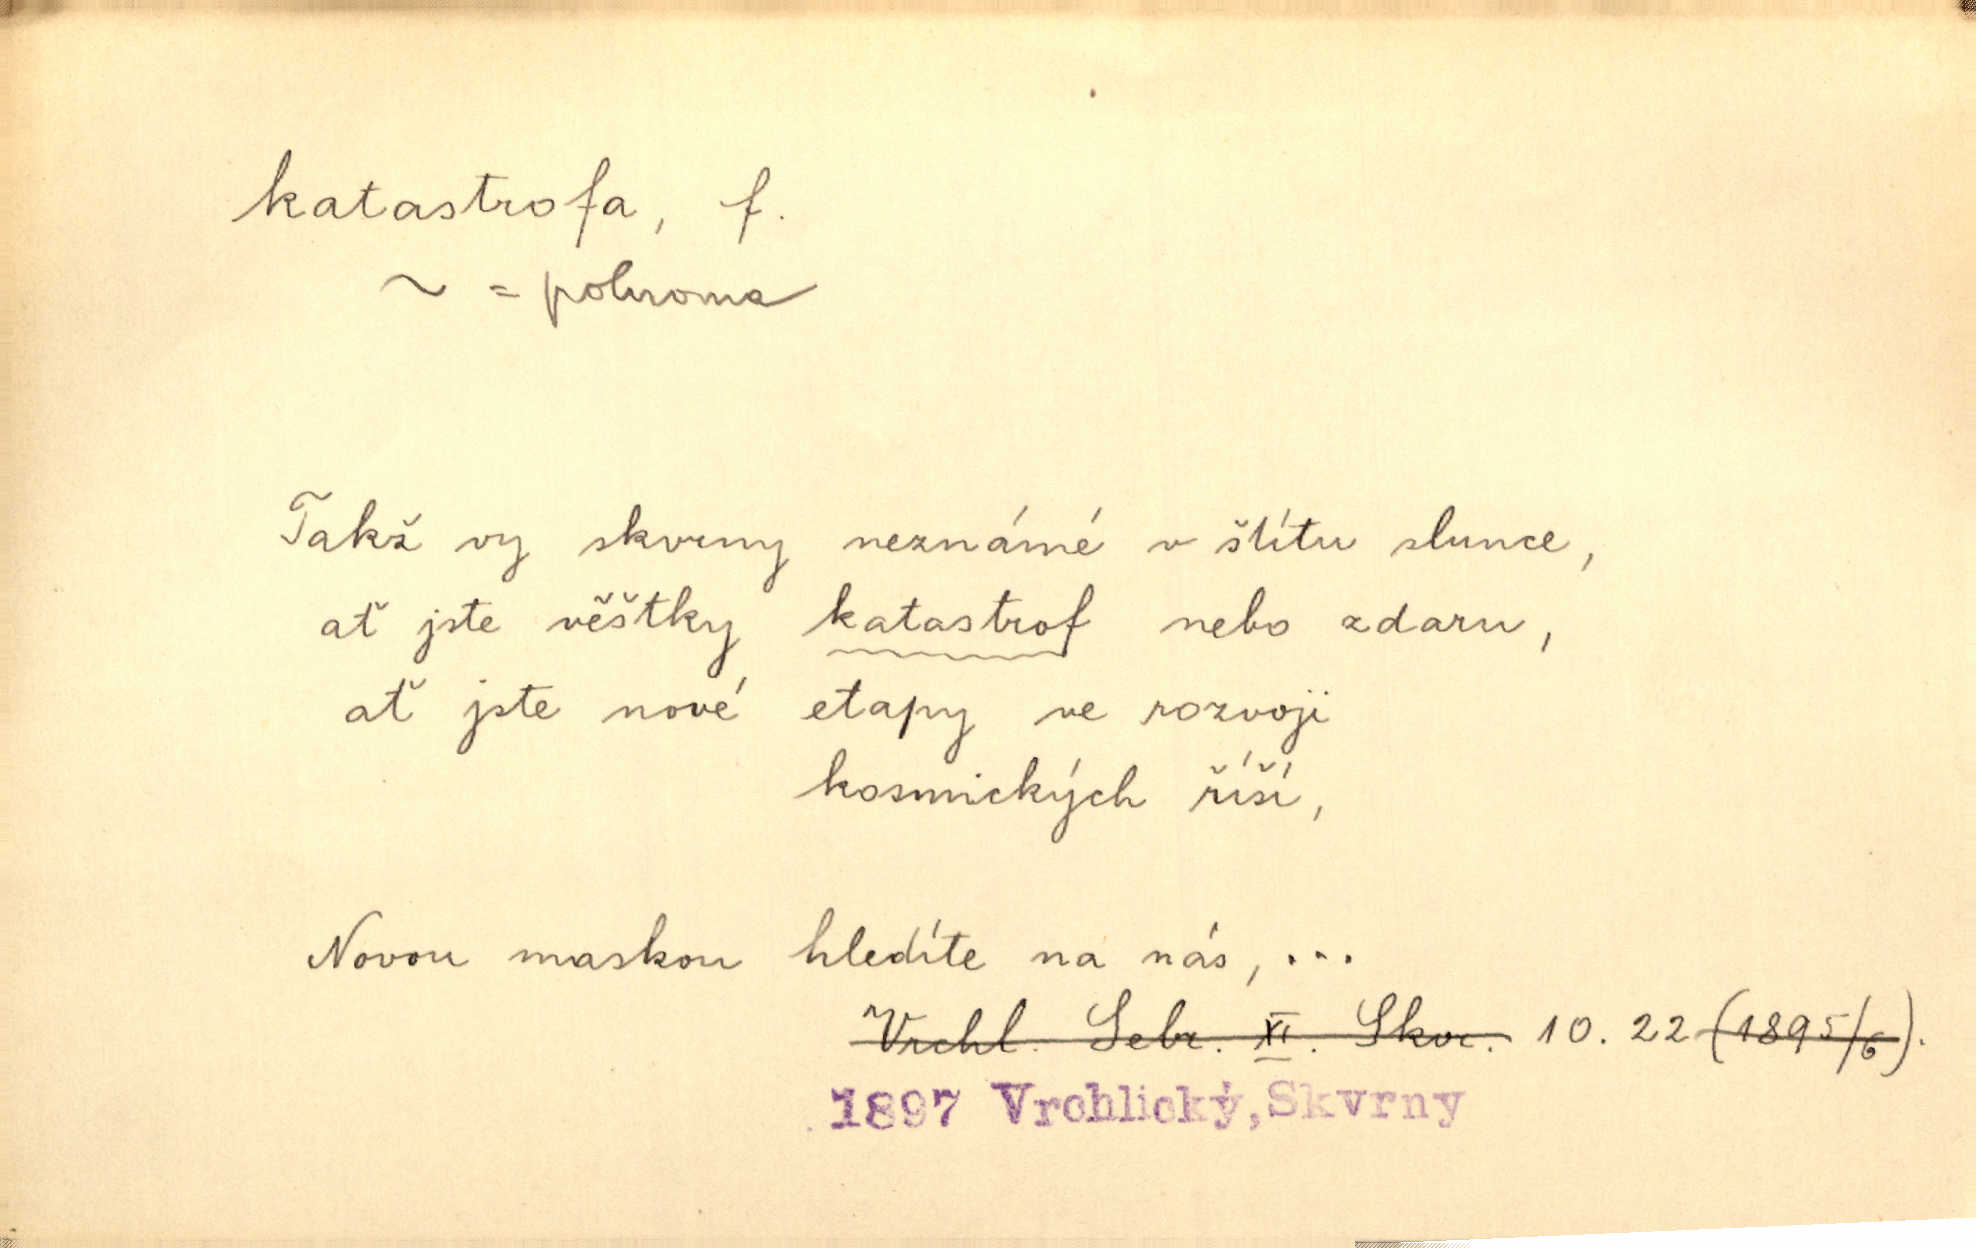 katastrofa, f.
~ = pohroma
Takž vy skvrny neznámé v štítu slunce,
ať jste věštky katastrof nebo zdaru,
ať jste nové etapy ve rozvoji
kosmických říší,
Novou maskou hledíte na nás, ...
Vrchl. Sebr. XI. Skvr. 10. 22 (1895/6).
1897 Vrchlický, Skvrny